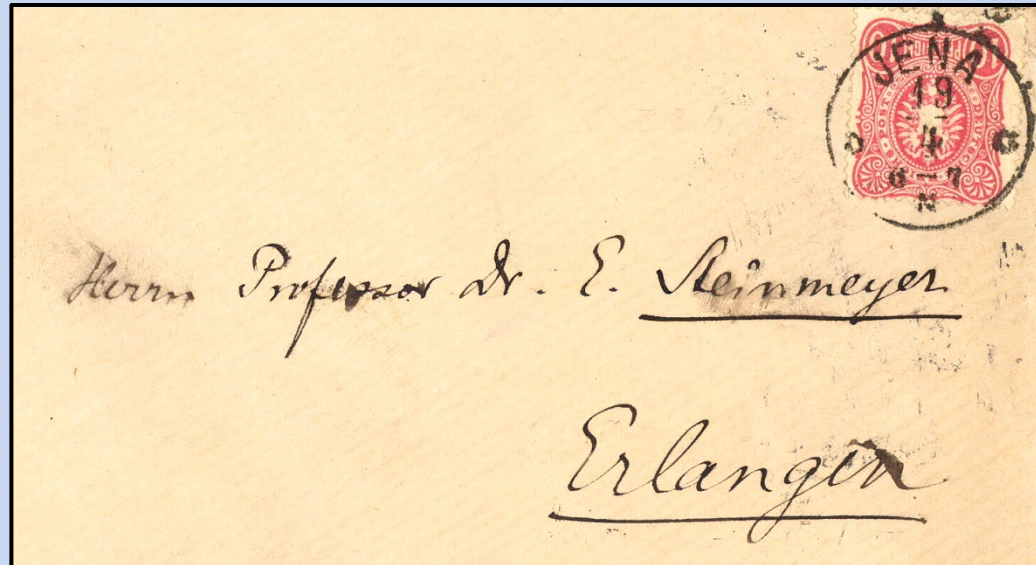 JENA
19
4
6-7
N
Herrn Professor Dr. E. Steinmeyer
Erlangen